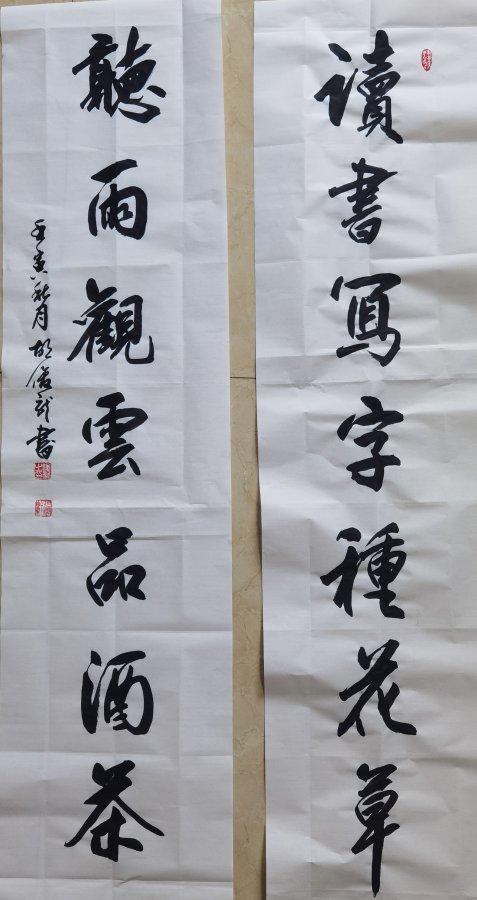 讀書寫字種花草
聽雨觀雲品酒茶
壬寅秋月胡俊武書